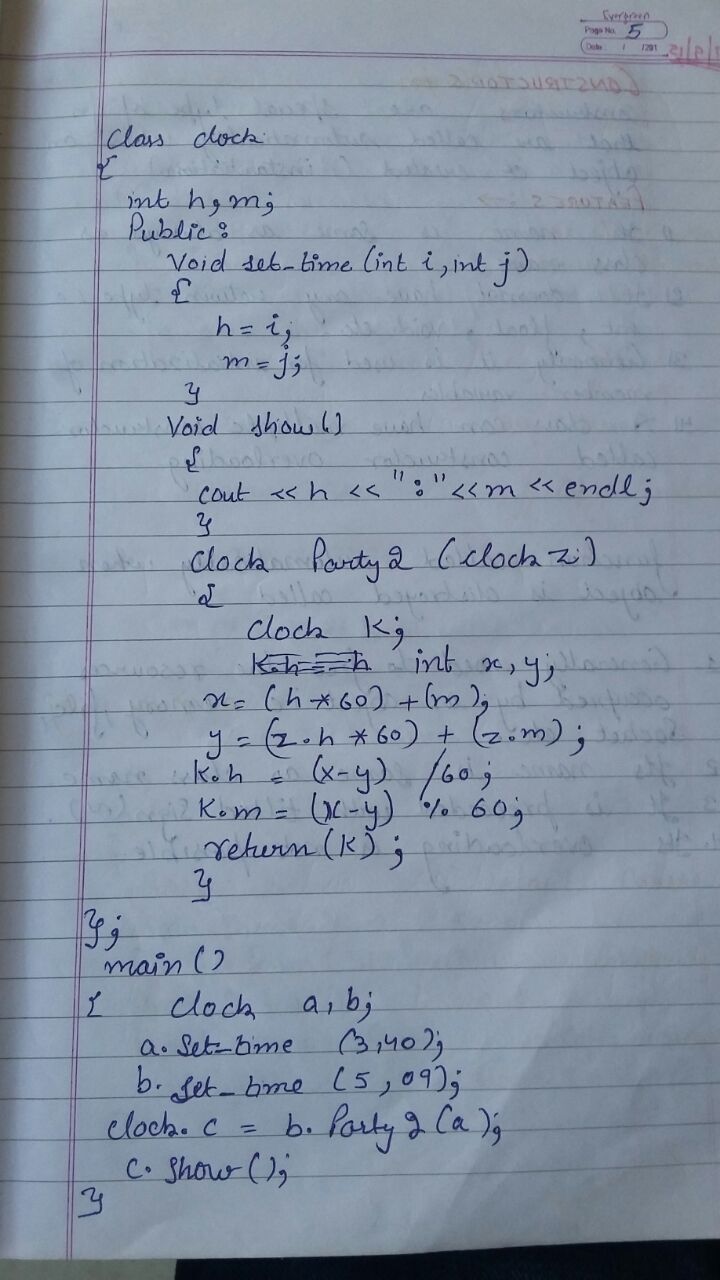 Evergreen
Page No. 5
Date / /201
class clock
{
int h, m;
Public:
Void set_time (int i, int j)
{
h = i;
m = j;
}
Void show()
{
cout << h << ":" << m << endl;
}
Clock Party2 (clock z)
{
Clock K;
int x, y;
x = (h * 60) + (m);
y = (z.h * 60) + (z.m);
K.h = (x-y) /60;
K.m = (x-y) % 60;
return (K);
}
};
main ()
{ Clock a, b;
a. set_time (3,40);
b. set_time (5, 09);
clock. c = b. Party2 (a);
c. show ();
}